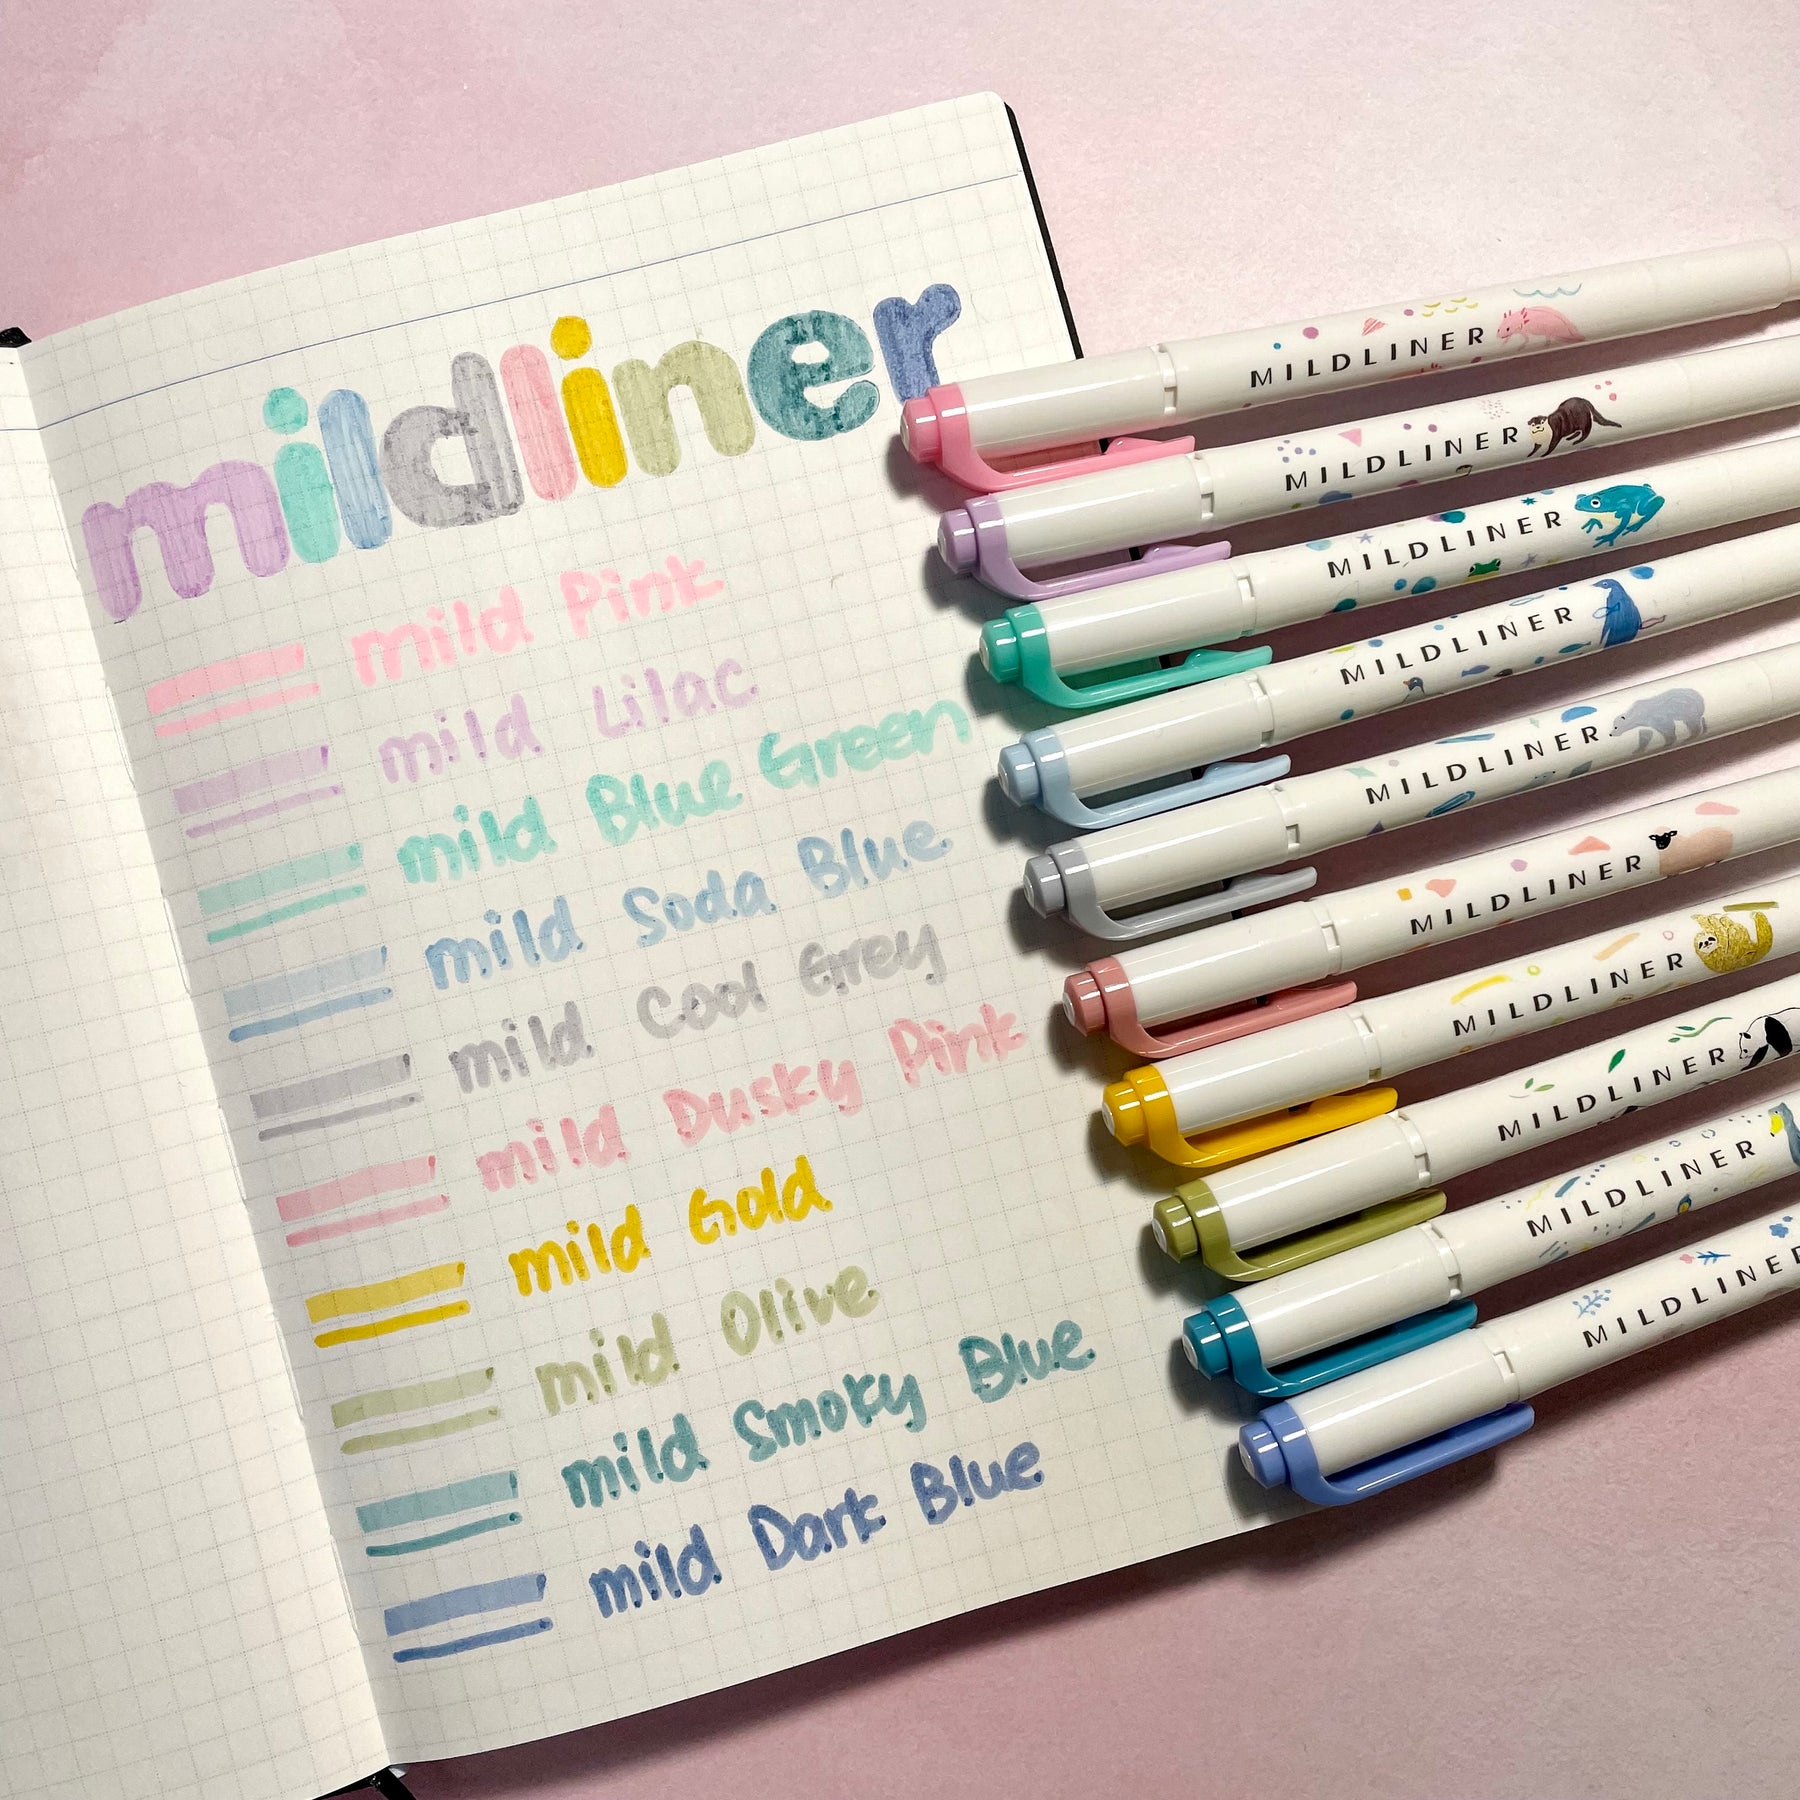 mildliner
mild Pink
mild Lilac
mild Blue Green
mild Soda Blue
mild Cool Grey
mild Dusky Pink
mild Gold
mild Olive
mild Smoky Blue
mild Dark Blue
MILDLINER
MILDLINER
MILDLINER
MILDLINER
MILDLINER
MILDLINER
MILDLINER
MILDLINER
MILDLINER
MILDLINER